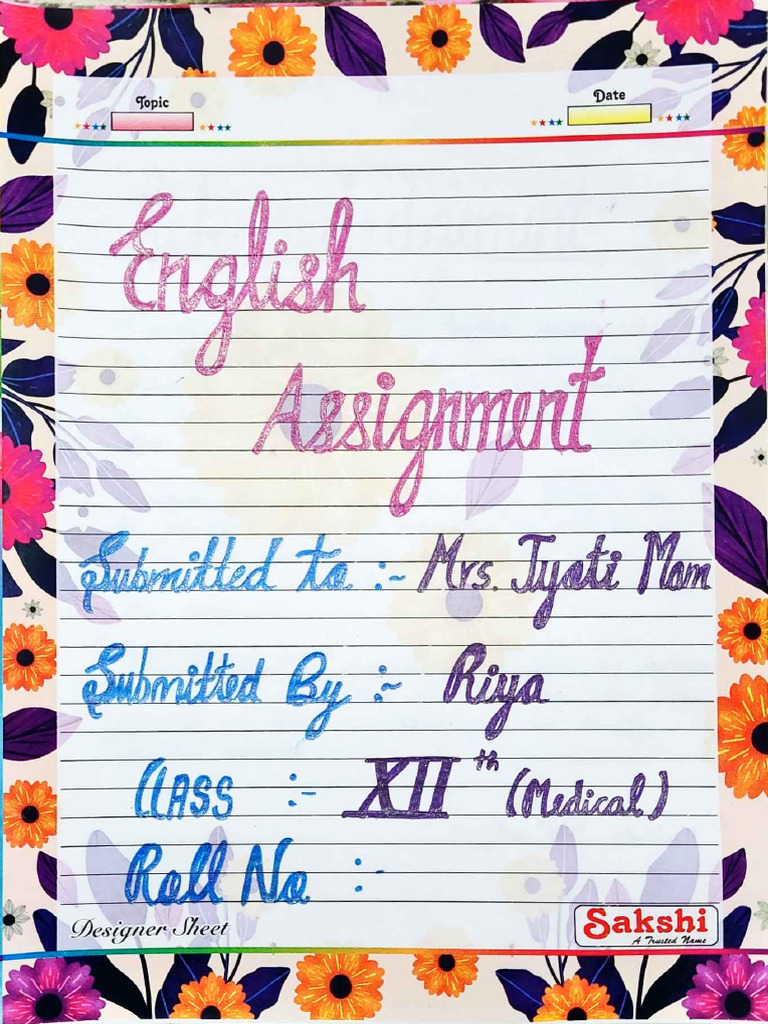 Topic
Date
English
Assignment
Submitted to :- Mrs. Jyoti Mam
Submitted By :- Riya
CLASS :- XII th (Medical)
Roll No :-
Designer Sheet
Sakshi
A Trusted Name